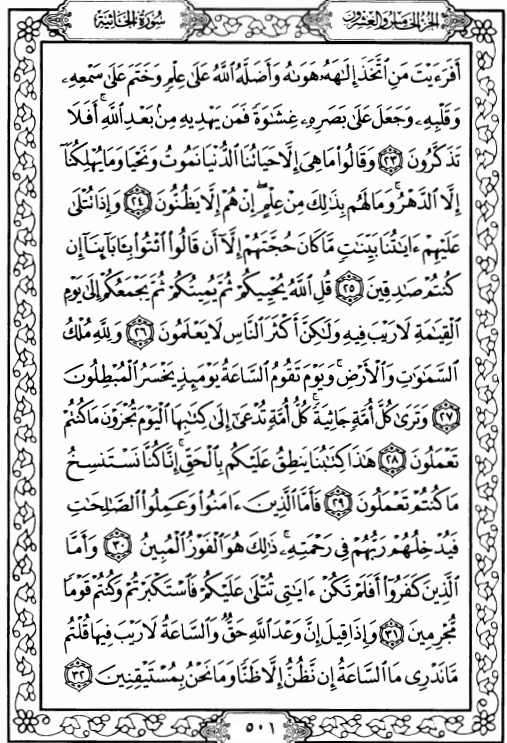 سُورَةُ الجَاثِيَةِ
الجُزْءُ الخَامِسُ وَالعِشْرُونَ
أَفَرَءَيْتَ مَنِ ٱتَّخَذَ إِلَٰهَهُۥ هَوَىٰهُ وَأَضَلَّهُ ٱللَّهُ عَلَىٰ عِلْمٍ وَخَتَمَ عَلَىٰ سَمْعِهِۦ
وَقَلْبِهِۦ وَجَعَلَ عَلَىٰ بَصَرِهِۦ غِشَٰوَةً فَمَن يَهْدِيهِ مِنۢ بَعْدِ ٱللَّهِ ۚ أَفَلَا
تَذَكَّرُونَ ٢٣ وَقَالُوا۟ مَا هِىَ إِلَّا حَيَاتُنَا ٱلدُّنْيَا نَمُوتُ وَنَحْيَا وَمَا يُهْلِكُنَآ
إِلَّا ٱلدَّهْرُ ۚ وَمَا لَهُم بِذَٰلِكَ مِنْ عِلْمٍ ۖ إِنْ هُمْ إِلَّا يَظُنُّونَ ٢٤ وَإِذَا تُتْلَىٰ
عَلَيْهِمْ ءَايَٰتُنَا بَيِّنَٰتٍ مَّا كَانَ حُجَّتَهُمْ إِلَّآ أَن قَالُوا۟ ٱئْتُوا۟ بِـَٔابَآئِنَآ إِن
كُنتُمْ صَٰدِقِينَ ٢٥ قُلِ ٱللَّهُ يُحْيِيكُمْ ثُمَّ يُمِيتُكُمْ ثُمَّ يَجْمَعُكُمْ إِلَىٰ يَوْمِ
ٱلْقِيَٰمَةِ لَا رَيْبَ فِيهِ وَلَٰكِنَّ أَكْثَرَ ٱلنَّاسِ لَا يَعْلَمُونَ ٢٦ وَلِلَّهِ مُلْكُ
ٱلسَّمَٰوَٰتِ وَٱلْأَرْضِ ۚ وَيَوْمَ تَقُومُ ٱلسَّاعَةُ يَوْمَئِذٍ يَخْسَرُ ٱلْمُبْطِلُونَ
٢٧ وَتَرَىٰ كُلَّ أُمَّةٍ جَاثِيَةً ۚ كُلُّ أُمَّةٍ تُدْعَىٰٓ إِلَىٰ كِتَٰبِهَا ٱلْيَوْمَ تُجْزَوْنَ مَا كُنتُمْ
تَعْمَلُونَ ٢٨ هَٰذَا كِتَٰبُنَا يَنطِقُ عَلَيْكُم بِٱلْحَقِّ ۚ إِنَّا كُنَّا نَسْتَنسِخُ
مَا كُنتُمْ تَعْمَلُونَ ٢٩ فَأَمَّا ٱلَّذِينَ ءَامَنُوا۟ وَعَمِلُوا۟ ٱلصَّٰلِحَٰتِ
فَيُدْخِلُهُمْ رَبُّهُمْ فِى رَحْمَتِهِۦ ۚ ذَٰلِكَ هُوَ ٱلْفَوْزُ ٱلْمُبِينُ ٣٠ وَأَمَّا
ٱلَّذِينَ كَفَرُوٓا۟ أَفَلَمْ تَكُنْ ءَايَٰتِى تُتْلَىٰ عَلَيْكُمْ فَٱسْتَكْبَرْتُمْ وَكُنتُمْ قَوْمًا
مُّجْرِمِينَ ٣١ وَإِذَا قِيلَ إِنَّ وَعْدَ ٱللَّهِ حَقٌّ وَٱلسَّاعَةُ لَا رَيْبَ فِيهَا قُلْتُم
مَّا نَدْرِى مَا ٱلسَّاعَةُ إِن نَّظُنُّ إِلَّا ظَنًّا وَمَا نَحْنُ بِمُسْتَيْقِنِينَ ٣٢
٥٠١